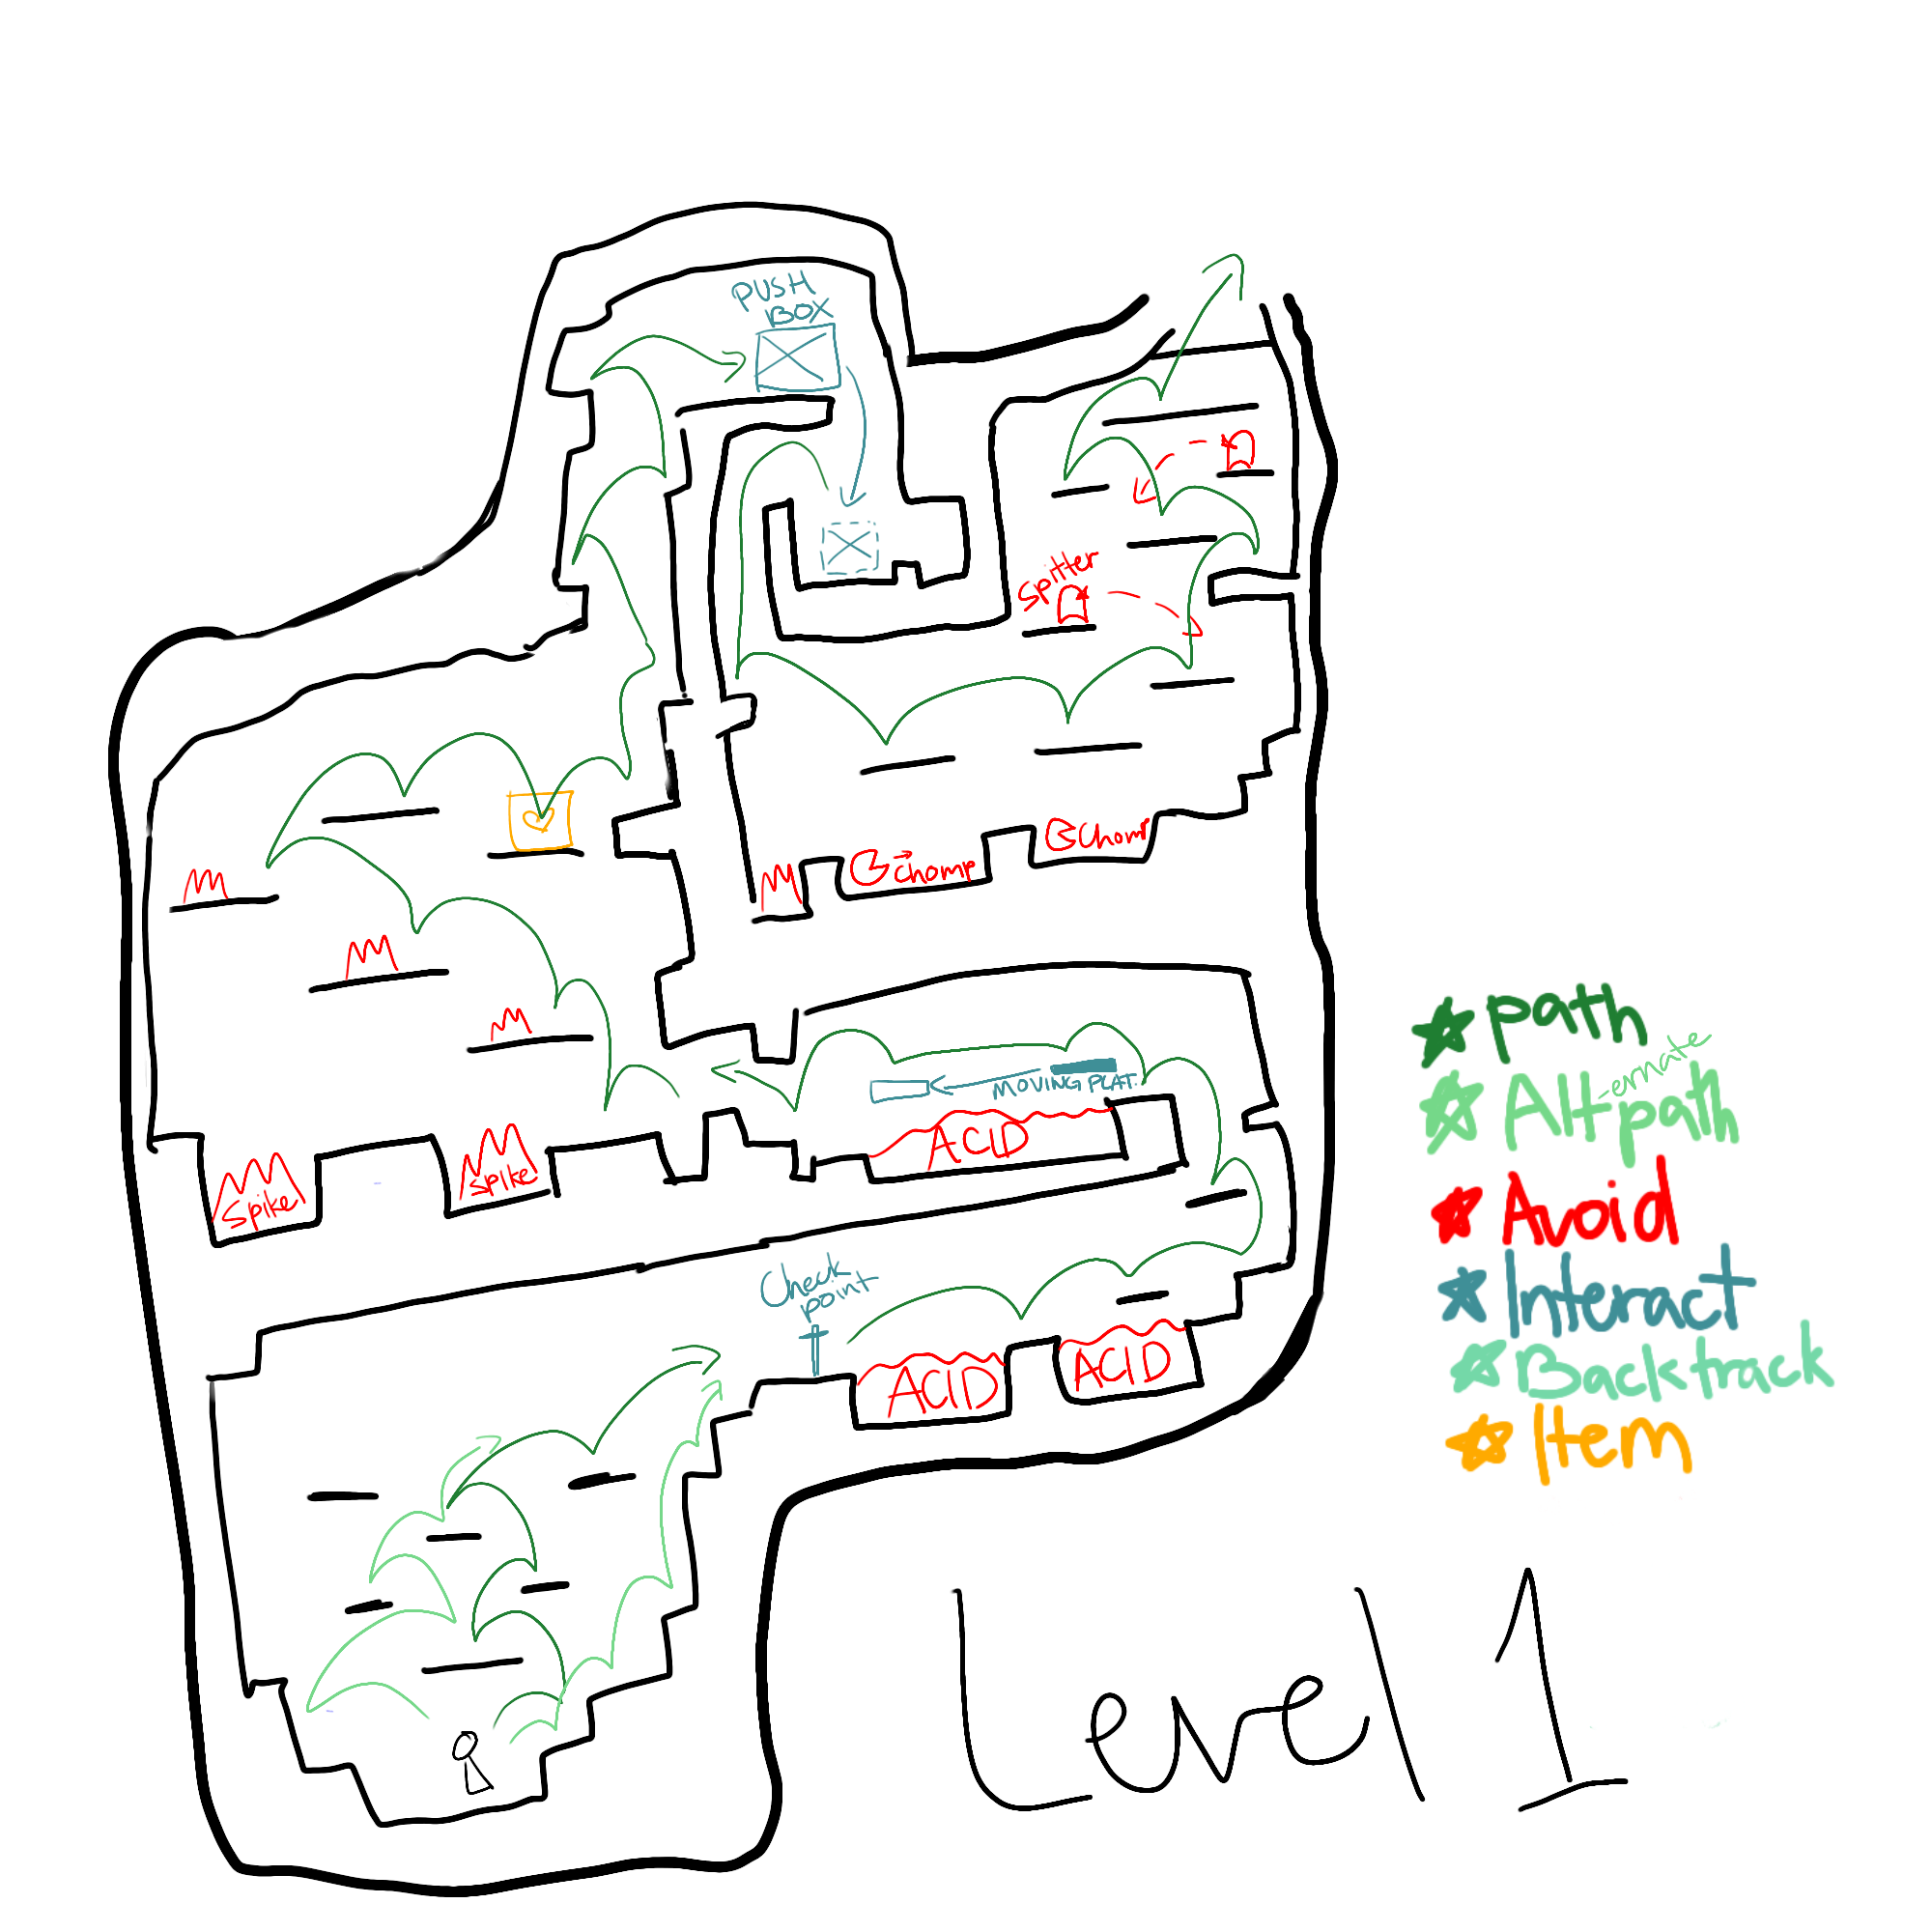 PUSH
BOX
Spitter
Chomp
Chomp
MOVING PLAT.
ACID
Spike
Spike
Check
point
ACID
ACID
path
Alt-ernate path
Avoid
Interact
Backtrack
Item
Level 1